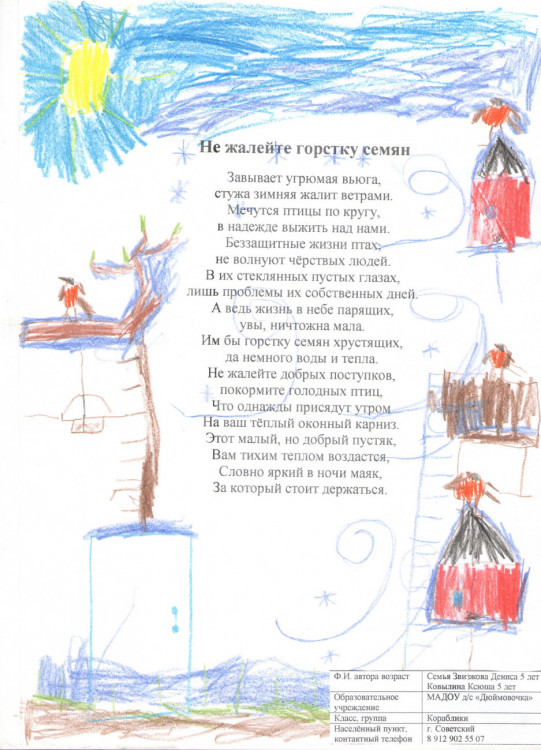 Не жалейте горстку семян
Завывает угрюмая вьюга,
стужа зимняя жалит ветрами.
Мечутся птицы по кругу,
в надежде выжить над нами.
Беззащитные жизни птах,
не волнуют чёрствых людей.
В их стеклянных пустых глазах,
лишь проблемы их собственных дней.
А ведь жизнь в небе парящих,
увы, ничтожна мала.
Им бы горстку семян хрустящих,
да немного воды и тепла.
Не жалейте добрых поступков,
покормите голодных птиц,
Что однажды присядут утром
На ваш тёплый оконный карниз.
Этот малый, но добрый пустяк,
Вам тихим теплом воздастся,
Словно яркий в ночи маяк,
За который стоит держаться.
Ф.И. автора возраст
Семья Звизжова Дениса 5 лет
Ковылина Ксюша 5 лет
Образовательное
учреждение
МАДОУ д/с «Дюймовочка»
Класс, группа
Кораблики
Населённый пункт,
контактный телефон
г. Советский
8 912 902 55 07